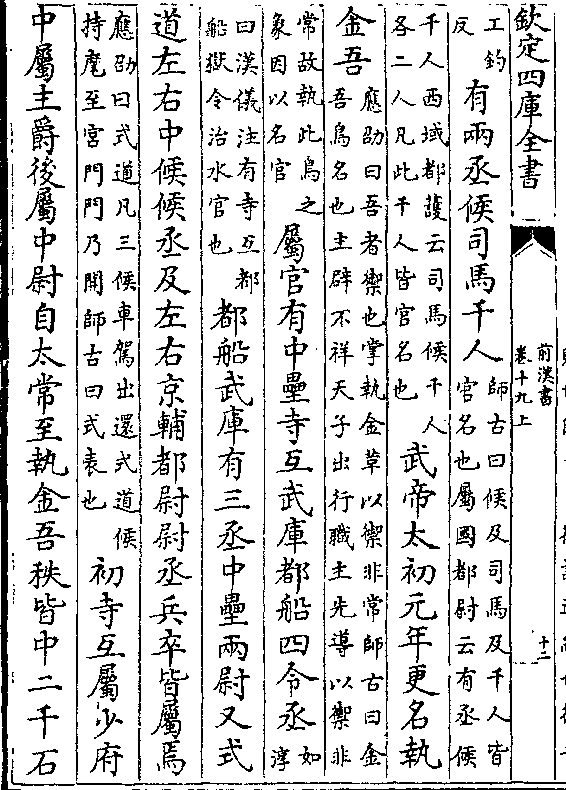 欽定四庫全書
前漢書
卷十九上
十二
工釣
反
有兩丞候司馬千人
師古曰候及司馬及千人皆
官名也屬國都尉云有丞候
千人西域都護云司馬候千人
各二人凡此千人皆官名也
武帝太初元年更名執
金吾
應劭曰吾者禦也掌執金草以禦非常師古曰金
吾鳥名也主辟不祥天子出行職主先導以禦非
常故執此鳥之
象因以名官
屬官有中壘寺互武庫都船四令丞
如
淳
曰漢儀注有寺互都
船獄令治水官也
都船武庫有三丞中壘兩尉又式
道左右中候候丞及左右京輔都尉尉丞兵卒皆屬焉
應劭曰式道凡三候車駕出還式道候
持麾至宮門門乃開師古曰式表也
初寺互屬少府
中屬主爵後屬中尉自太常至執金吾秩皆中二千石